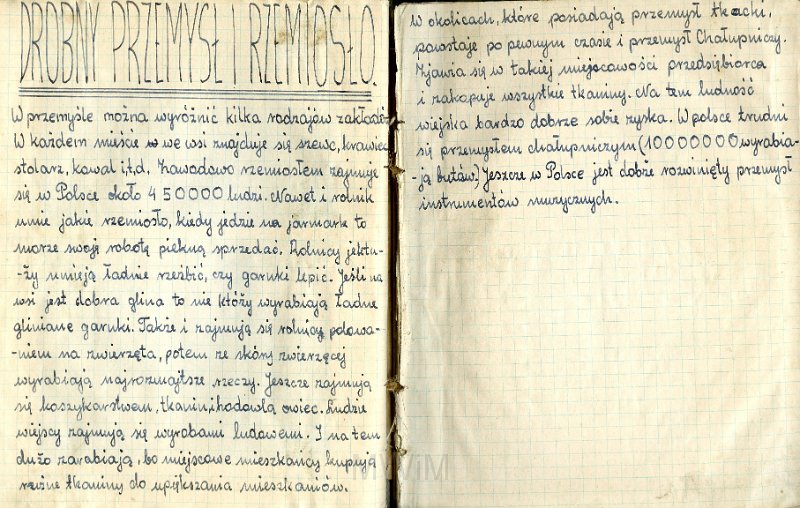 DROBNY PRZEMYSŁ I RZEMIOSŁO.
W przemyśle można wyróżnić kilka rodzajów zakładów
W każdem mieście w we wsi znajduje się szewc, krawiec
stolarz, kowal i,t,d. Zawadowo rzemiosłem zajmuje
się w Polsce około 450000 ludzi. Nawet i rolnik
umie jakie rzemiosło, kiedy jedzie na jarmark to
morze swoję robotę piękną sprzedać. Rolnicy jektu-
-ży umieją ładnie rzeźbić, czy garnki lepić. Jeśli na
wsi jest dobra glina to nie któży wyrabiają ładne
gliniane garnki. Także i zajmują się rolnicy polowa-
-niem na zwierzęta, potem ze skóry zwierzęcej
wyrabiają najrozmajtsze rzeczy. Jeszcze zajmują
się koszykarstwem, tkanin, i hodowlą owiec. Ludzie
wiejscy zajmują się wyrobami ludowemi. I na tem
dużo zarabiają, bo miejscowe mieszkańcy kupują
reźne tkaniny do upiększania mieszkaniów.
W okolicach, które posiadają przemysł tkacki,
powstaje po pewnym czasie i przemysł Chałupniczy.
Zjawia się w takiej miejscowości przedsiębiorca
i zakupuje wszystkie tkaniny. Na tem ludność
wiejska bardzo dobrze sobie zyska. W polsce trudni
się przemysłem chałupniczym (10000000 wyrabia-
-ją butów) Jeszcze w Polsce jest dobże rozwinięty przemysł
instrumentów muzycznych.
MWiM